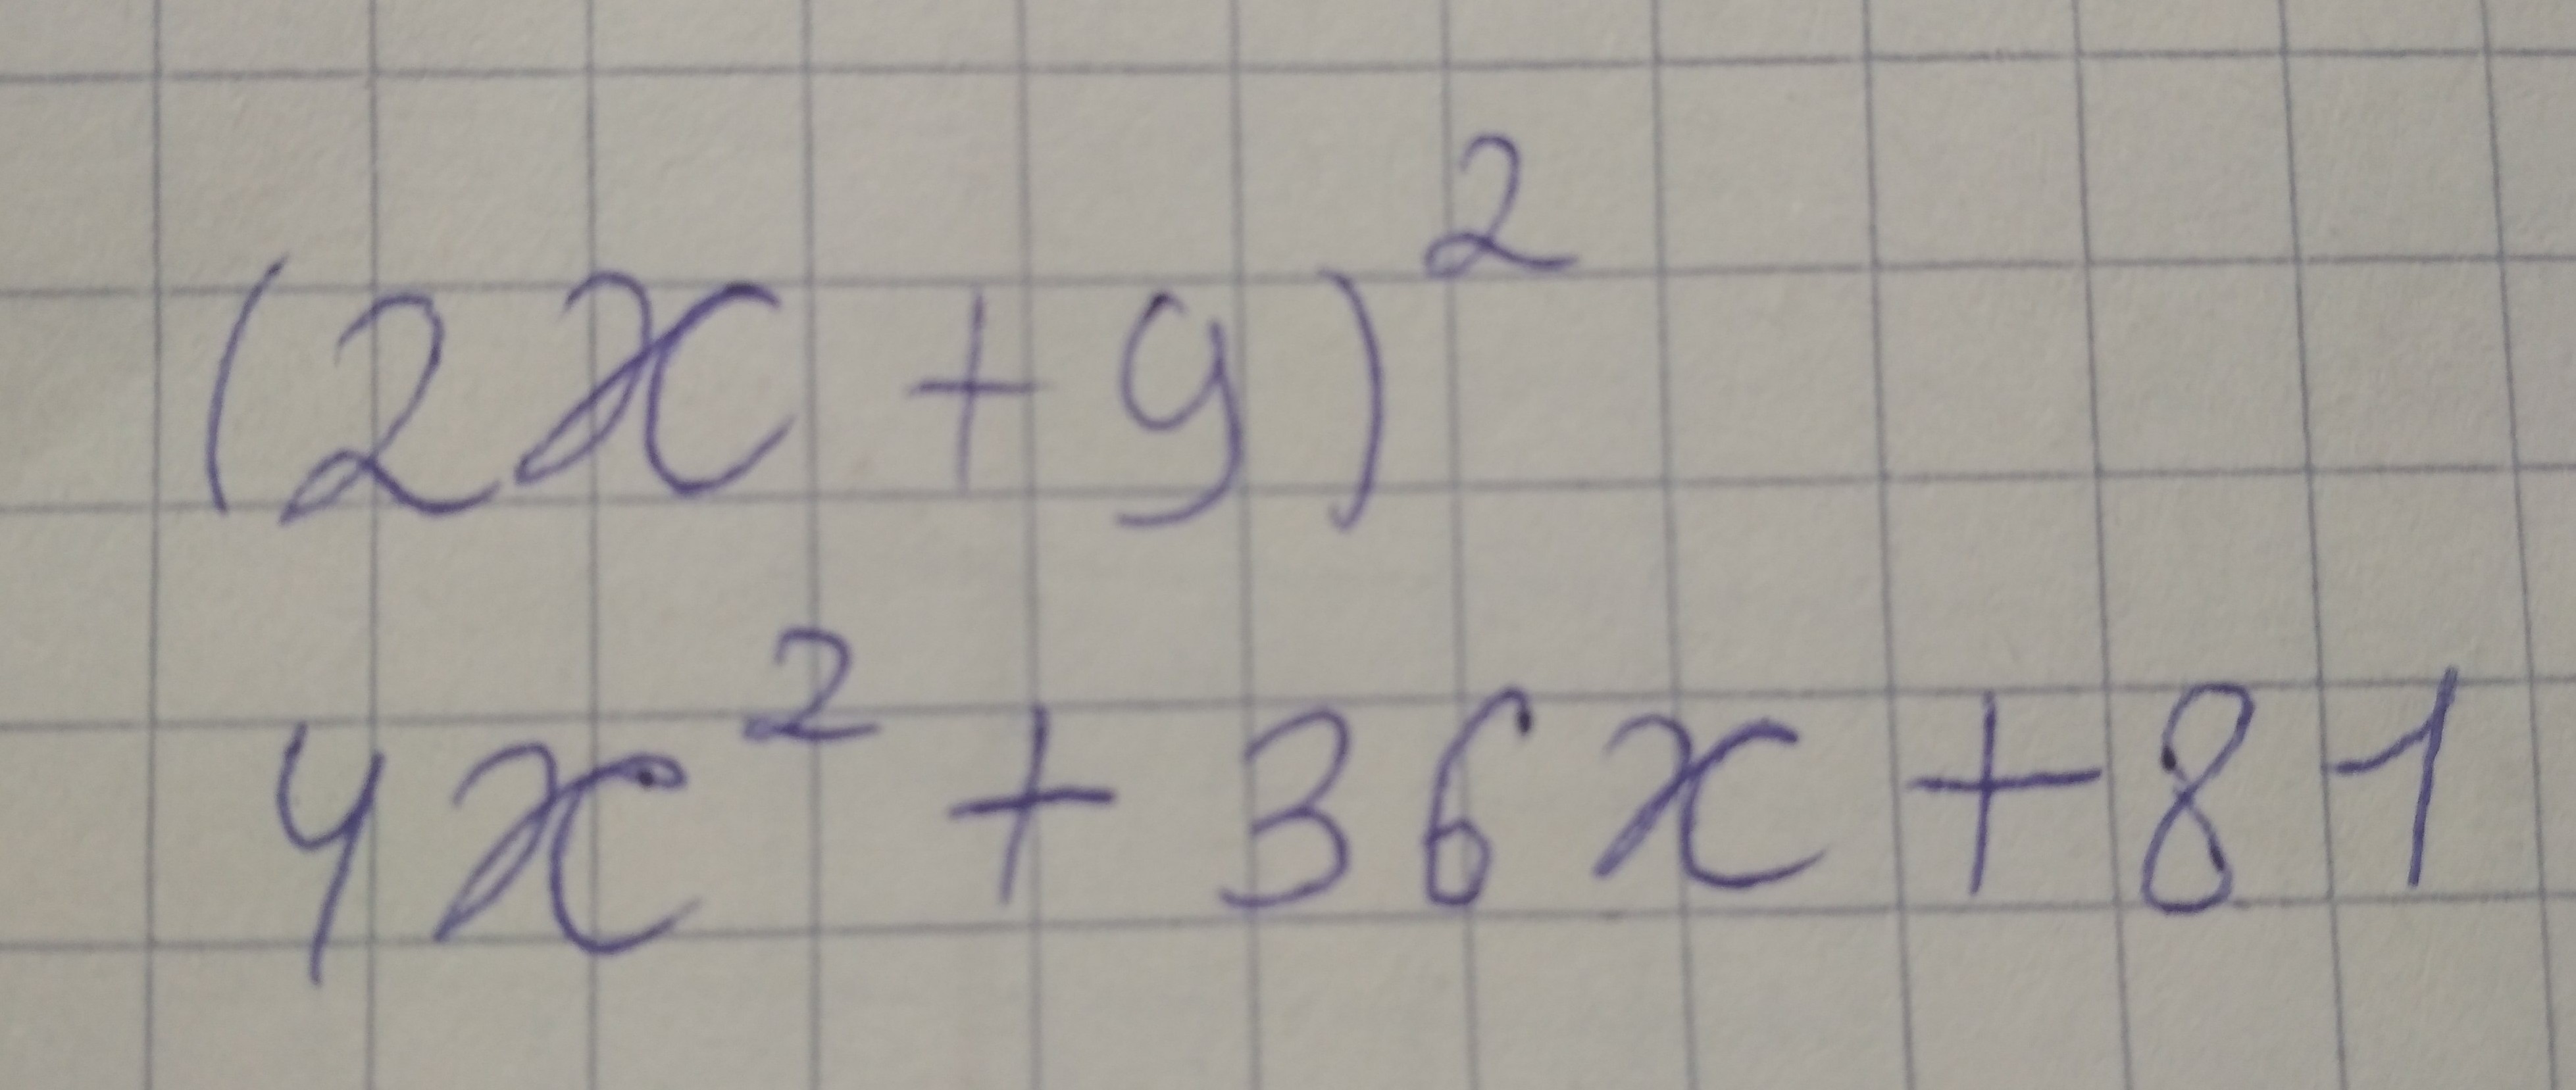 (2x+9)²
4x²+36x+81